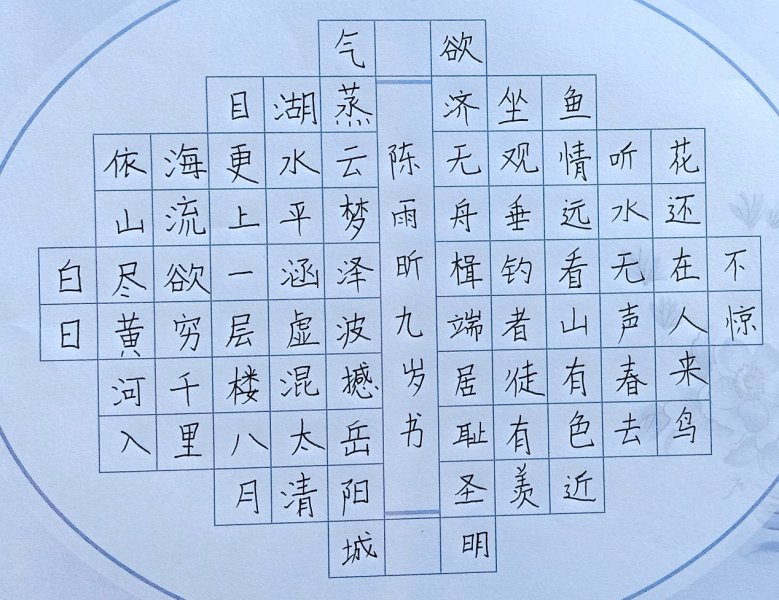 白日
依山尽黄河入
海流欲穷千里
目更上一层楼八月
湖水平涵虚混太清
气蒸云梦泽波撼岳阳城
陈雨昕九岁书
欲济无舟楫端居耻圣明
坐观垂钓者徒有羡
鱼情远看山有色近
听水无声春去
花还在人来鸟
不惊